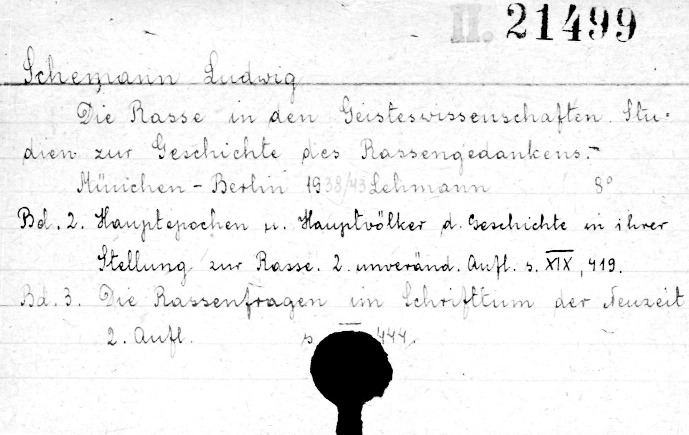 II. 21499
Schemann Ludwig
Die Rasse in den Geisteswissenschaften. Stu-
dien zur Geschichte des Rassengedankens.-
München - Berlin 1938/43 Lehmann 8°
Bd. 2. Hauptepochen u. Hauptvölker d. Geschichte in ihrer
Stellung zur Rasse. 2. unveränd. Aufl. s. XIX, 419.
Bd. 3. Die Rassenfragen im Schrifttum der Neuzeit
2. Aufl. s 444.